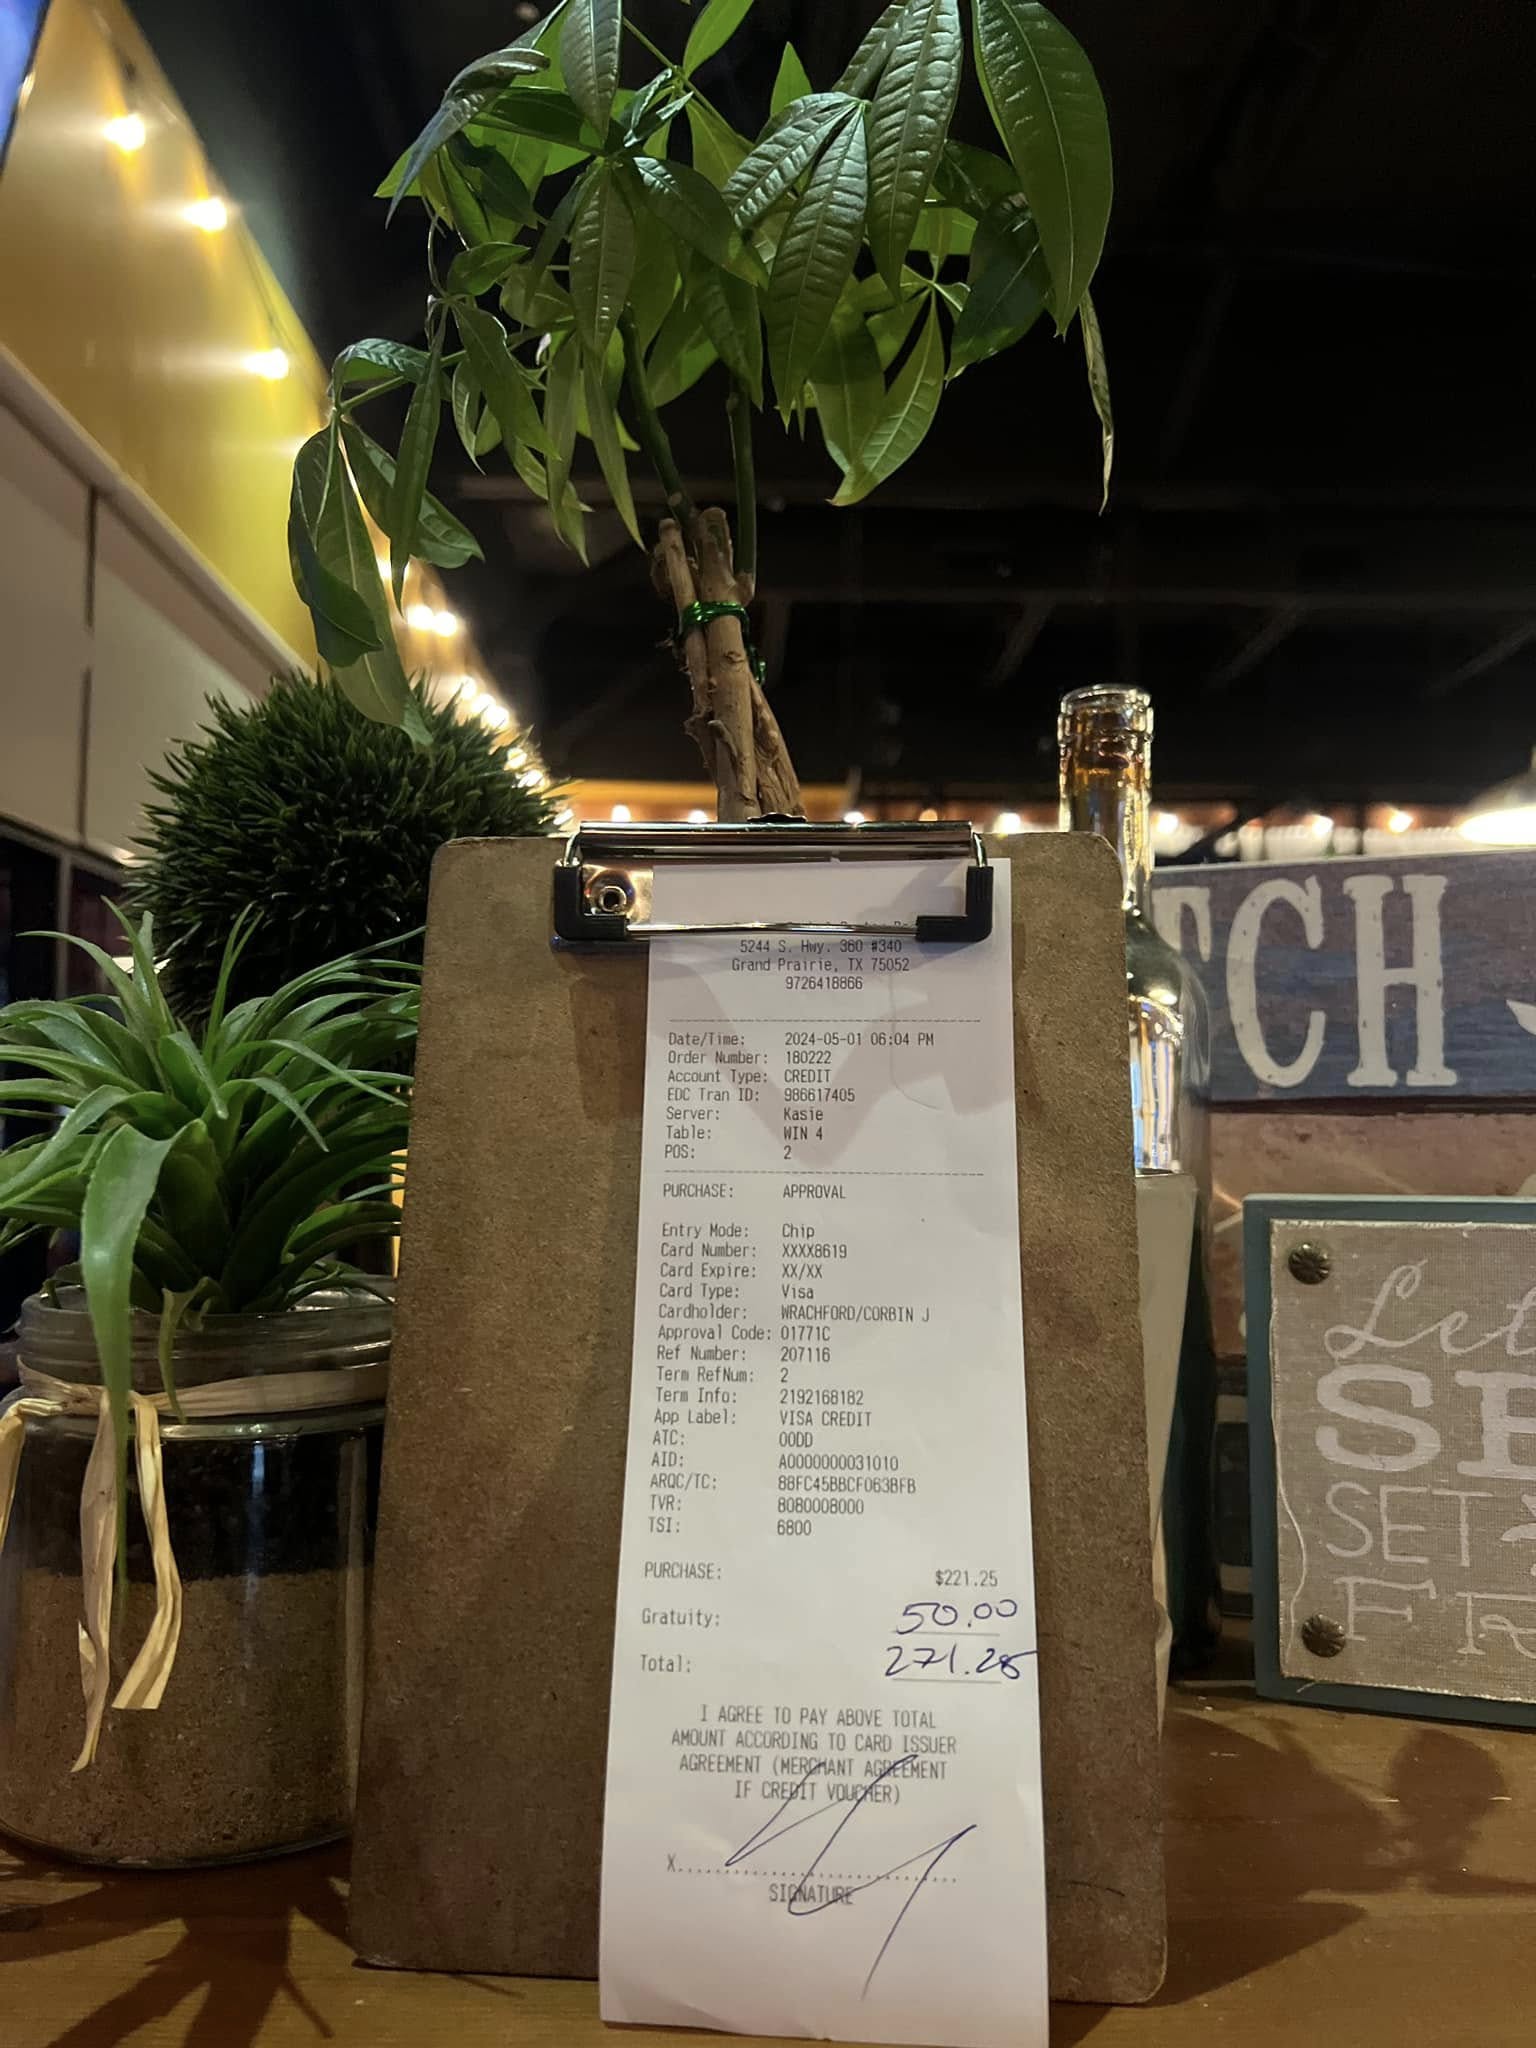 5244 S. Hwy. 360 #340
Grand Prairie, TX 75052
9726418866
Date/Time: 2024-05-01 06:04 PM
Order Number: 180222
Account Type: CREDIT
EDC Tran ID: 986617405
Server: Kasie
Table: WIN 4
POS: 2
PURCHASE: APPROVAL
Entry Mode: Chip
Card Number: XXXX8619
Card Expire: XX/XX
Card Type: Visa
Cardholder: WRACHFORD/CORBIN J
Approval Code: 01771C
Ref Number: 207116
Term RefNum: 2
Term Info: 2192168182
App Label: VISA CREDIT
ATC: 00DD
AID: A0000000031010
ARQC/TC: 88FC45BBCF063BFB
TVR: 8080008000
TSI: 6800
PURCHASE: $221.25
Gratuity: 50.00
Total: 271.25
I AGREE TO PAY ABOVE TOTAL
AMOUNT ACCORDING TO CARD ISSUER
AGREEMENT (MERCHANT AGREEMENT
IF CREDIT VOUCHER)
X
SIGNATURE
TCH
Let
SE
SET
FR